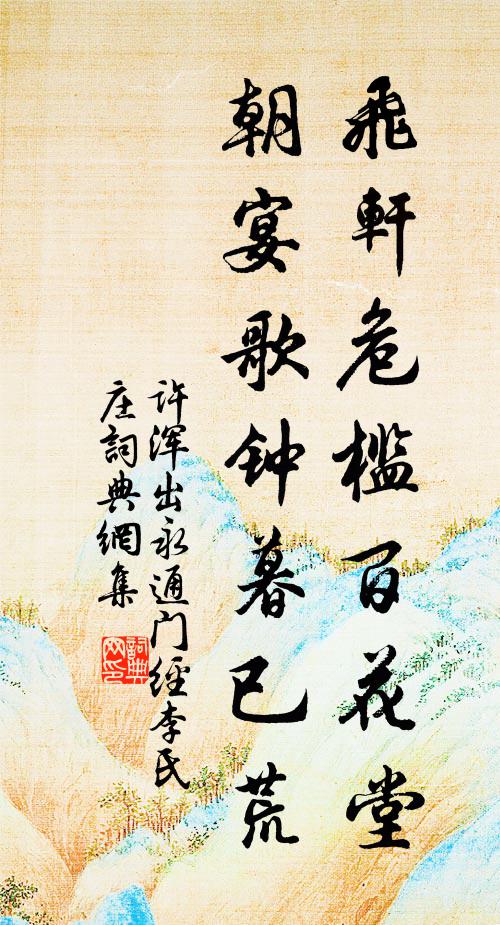 飛軒危檻百花堂
朝宴歌钟暮已荒
许浑出永通门经李氏
庄詞典網集
詞典网印